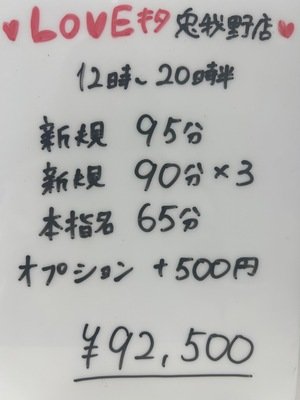 ♥LOVEキタ 兎我野店♥
12時〜20時半
新規 95分
新規 90分×3
本指名 65分
オプション +500円
¥92,500